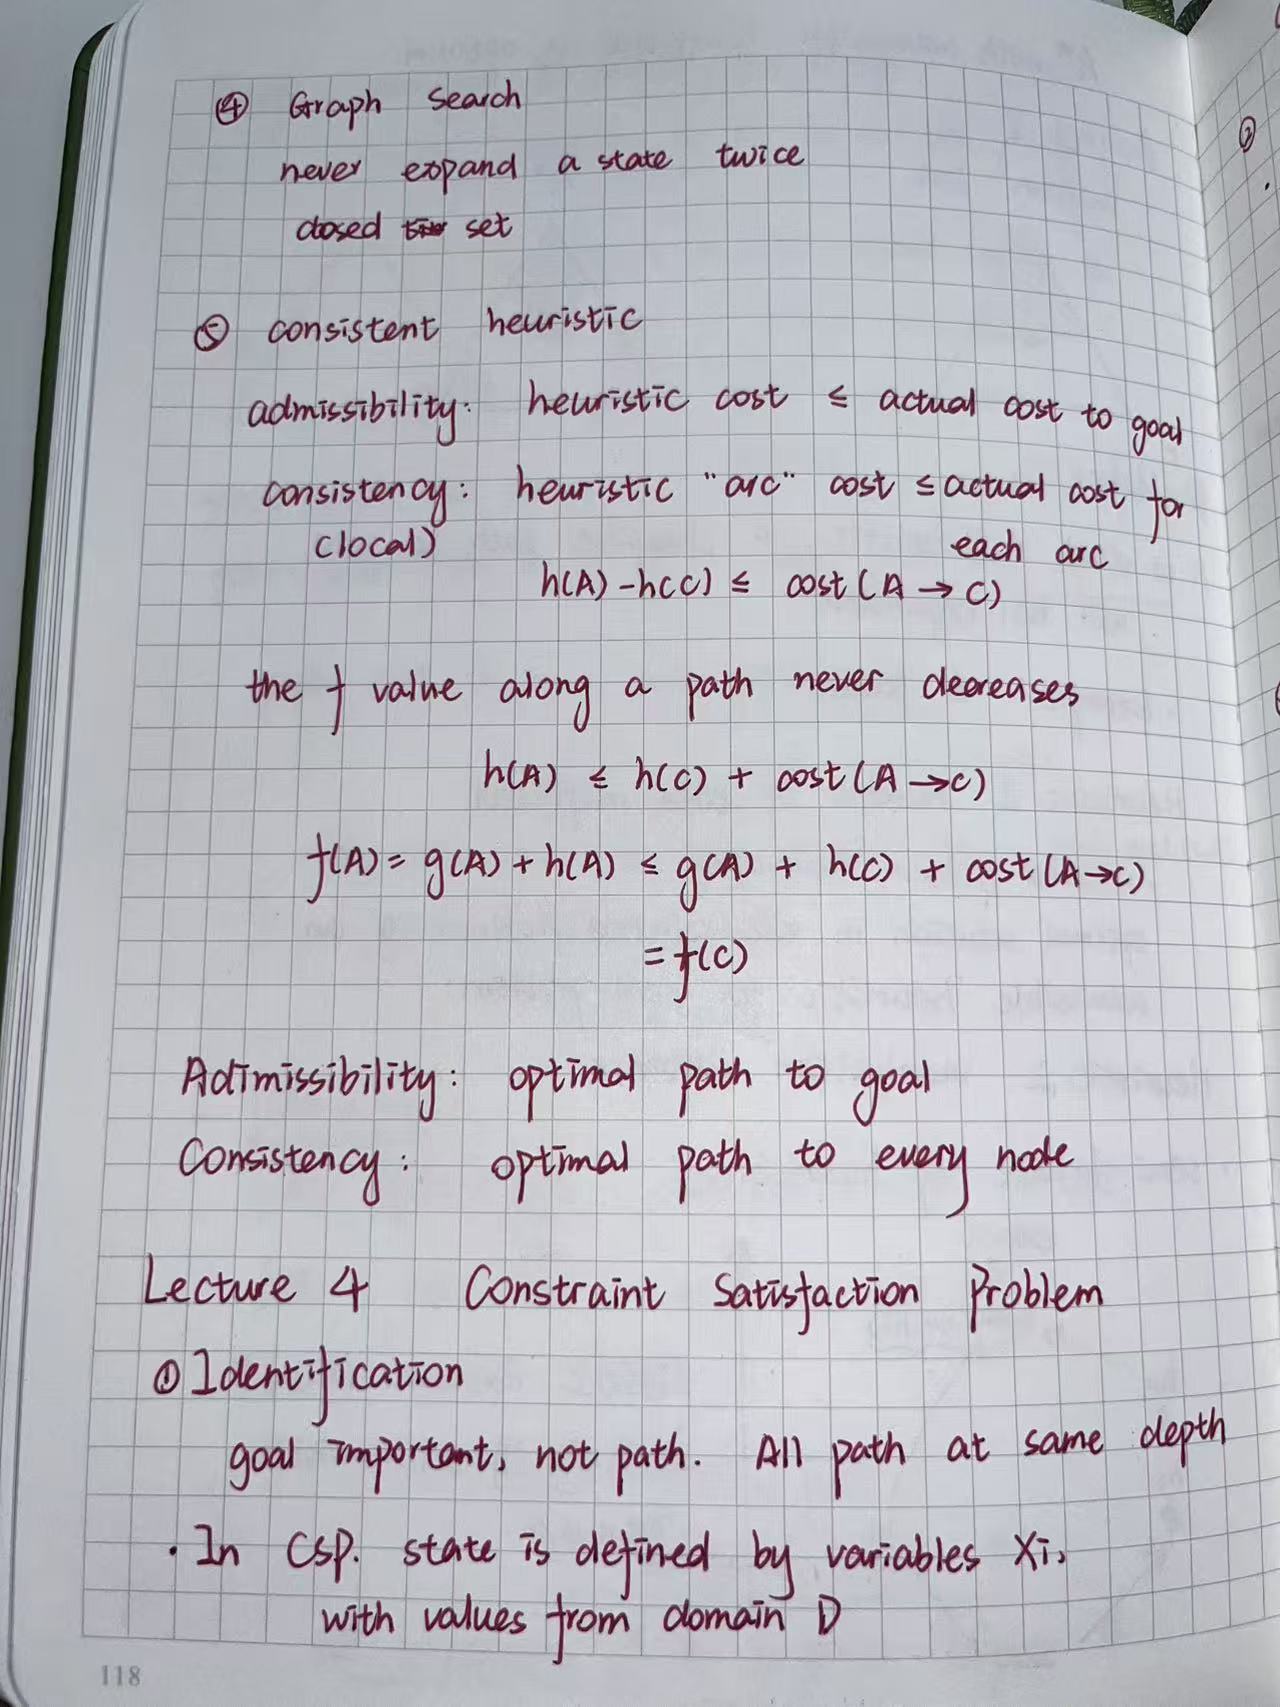 ④ Graph Search
never expand a state twice
closed set
⑤ consistent heuristic
admissibility: heuristic cost ≤ actual cost to goal
consistency: heuristic "arc" cost ≤ actual cost for
(local) each arc
h(A) - h(C) ≤ cost (A → C)
the f value along a path never decreases
h(A) ≤ h(C) + cost (A → C)
f(A) = g(A) + h(A) ≤ g(A) + h(C) + cost (A→C)
= f(C)
Adimissibility: optimal path to goal
Consistency: optimal path to every node
Lecture 4 Constraint Satisfaction Problem
① Identification
goal important, not path. All path at same depth
· In CSP. state is defined by variables Xi,
with values from domain D
118
②